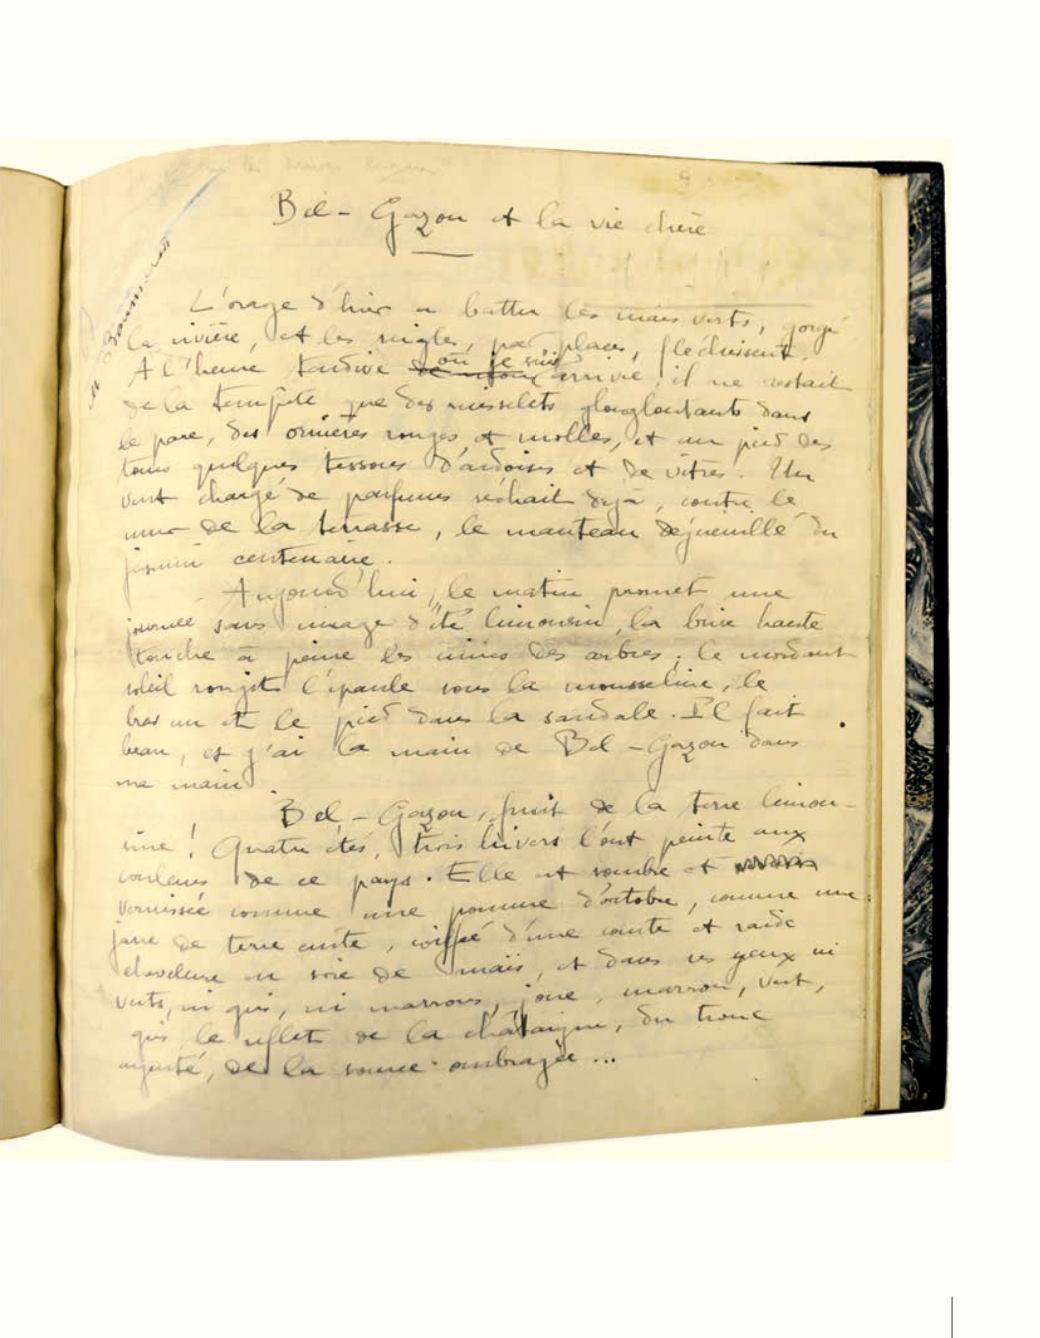 Bel-Gazou et la vie chère
L'orage d'hier a battu les maïs verts, gorgé
la rivière, et les seigles, par places, fléchissent.
A l'heure tardive où je suis arrivée, il ne restait
de la tempête que des ruisselets glougloutants dans
le parc, des ornières rouges et molles, et au pied des
toits quelques tessons d'ardoises et de vitres. Un
vent chargé de parfums séchait déjà, contre le
mur de la terrasse, le manteau déguenillé du
jasmin centenaire.
Aujourd'hui, le matin promet une
journée sans nuage d'été limousin, la brise haute
touche à peine les cimes des arbres ; le mordant
soleil rougit l'épaule sous la mousseline, le
bras nu et le pied dans la sandale. Il fait
beau, et j'ai la main de Bel-Gazou dans
ma main.
Bel-Gazou, fruit de la terre limou-
sine ! Quatre étés, trois hivers l'ont peinte aux
couleurs de ce pays. Elle est sombre et
vernissée comme une pomme d'octobre, comme une
jarre de terre cuite, coiffée d'une courte et raide
chevelure en soie de maïs, et dans ses yeux ni
verts, ni gris, ni marrons, joue, marron, vert,
gris, le reflet de la châtaigne, du tronc
argenté, de la source ombragée...